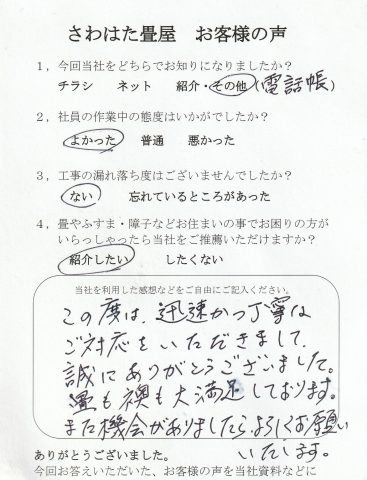 さわはた畳屋　お客様の声
1，今回当社をどちらでお知りになりましたか？
チラシ　ネット　紹介・その他（電話帳）
2，社員の作業中の態度はいかがでしたか？
よかった　普通　悪かった
3，工事の漏れ落ち度はございませんでしたか？
ない　忘れているところがあった
4，畳やふすま・障子などお住まいの事でお困りの方が
いらっしゃったら当社をご推薦いただけますか？
紹介したい　したくない
当社を利用した感想などをご自由にご記入ください。
この度は、迅速かつ丁寧な
ご対応をいただきまして、
誠にありがとうございました。
畳も襖も大満足しております。
また機会がありましたらよろしくお願い
いたします。
ありがとうございました。
今回お答えいただいた、お客様の声を当社資料などに